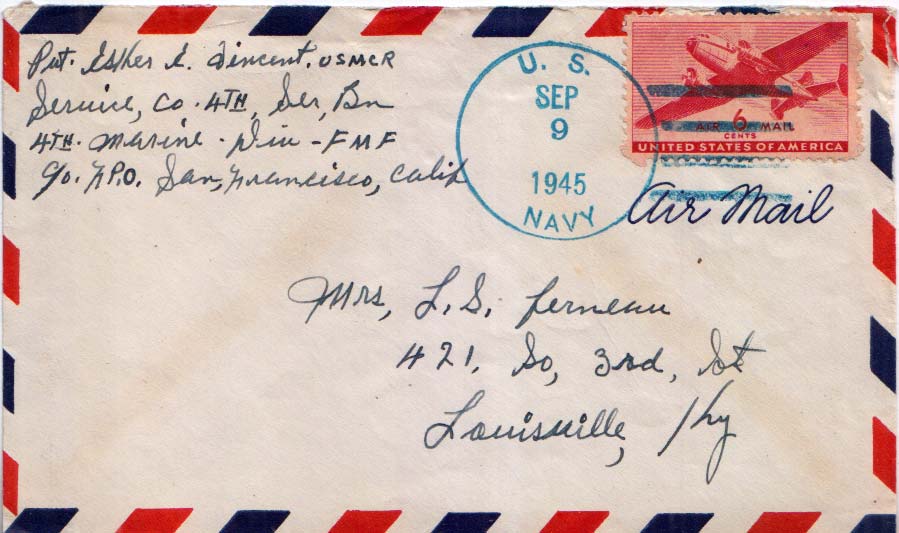 Pvt. Esther E. Vincent. USMCR
Service, Co. 4TH, Ser, Bn
4TH. Marine - Div - FMF
C/o. F.P.O. San, Francisco, Calif
U. S.
SEP
9
1945
NAVY
AIR 6 MAIL
CENTS
UNITED STATES OF AMERICA
Air Mail
Mrs, L. S. Ferneau
421. So, 3rd, St
Louisville, Ky